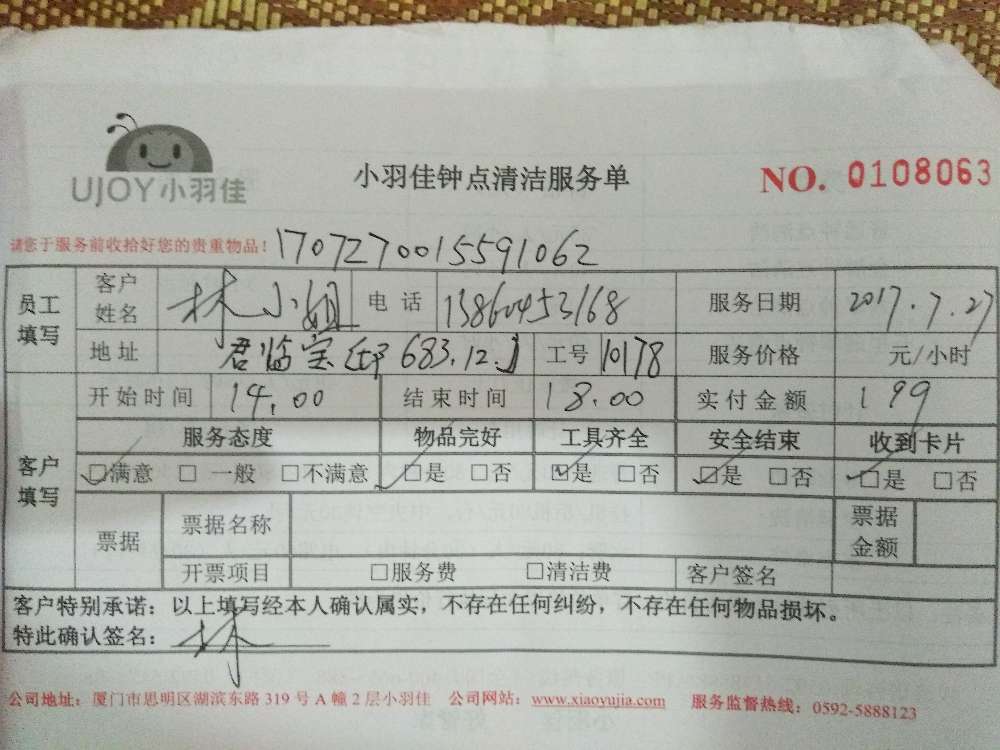 UJOY小羽佳
小羽佳钟点清洁服务单
NO. 0108063
请您于服务前收拾好您的贵重物品！1707270015591062
员工填写 客户姓名 林小姐 电话 13860453168 服务日期 2017.7.27
地址 君临宝邸683.12.J 工号 10178 服务价格 元/小时
客户填写 开始时间 14.00 结束时间 18.00 实付金额 199
服务态度 物品完好 工具齐全 安全结束 收到卡片
☑满意 □ 一般 □不满意 ☑是 □否 ☑是 □否 ☑是 □否 ☑是 □否
票据 票据名称 票据金额
开票项目 □服务费 □清洁费 客户签名
客户特别承诺：以上填写经本人确认属实，不存在任何纠纷，不存在任何物品损坏。
特此确认签名：林
公司地址：厦门市思明区湖滨东路 319 号 A 幢 2 层小羽佳 公司网站：www.xiaoyujia.com 服务监督热线：0592-5888123